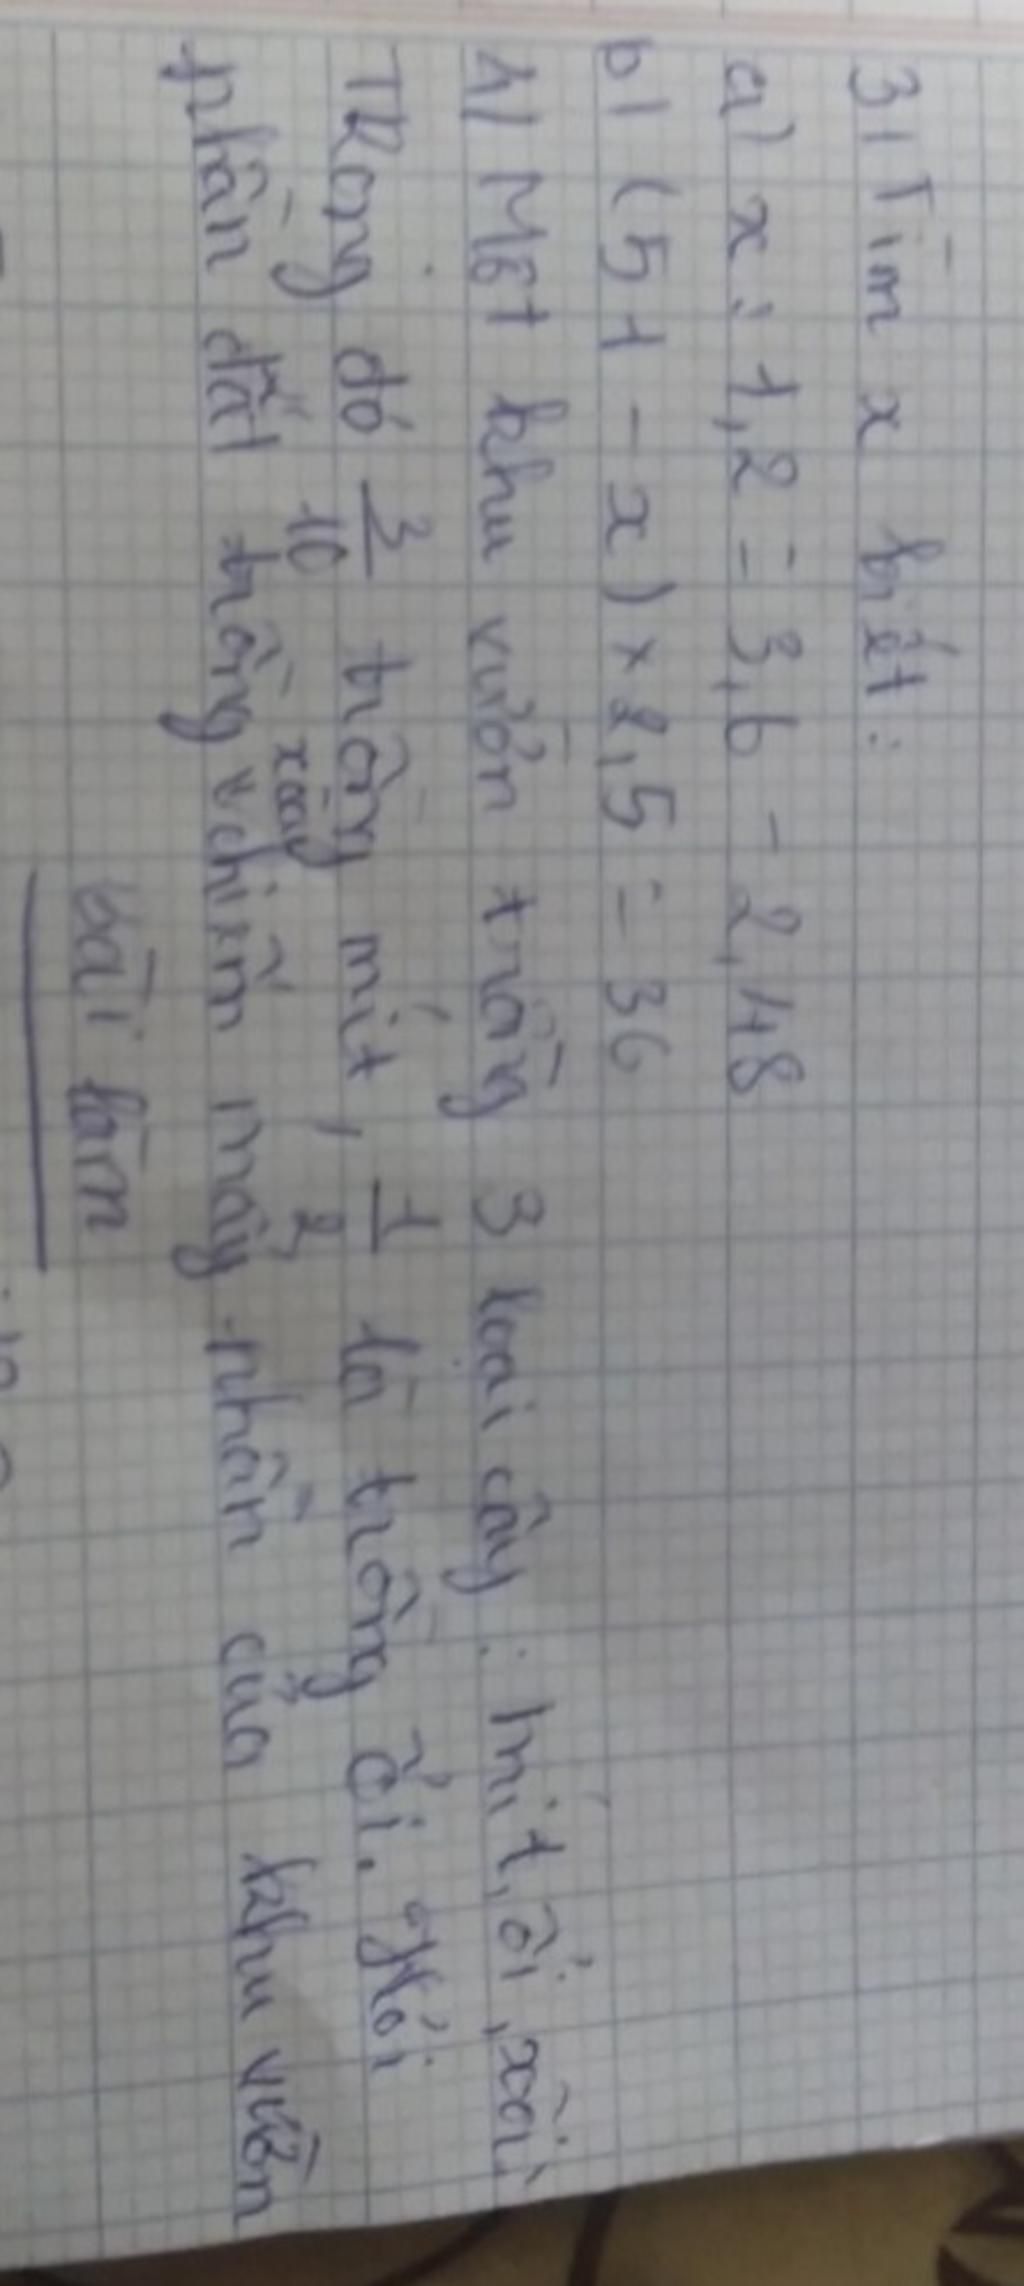 3) Tìm x biết:
a) x : 1,2 = 3,6 - 2,48
b) (51 - x) x 2,5 = 36
4) Một khu vườn trồng 3 loại cây : mít, ổi, xoài
Trong đó 3/10 trồng mít, 1/2 là trồng ổi. Hỏi
phần đất trồng xoài chiếm mấy phần của khu vườn
Bài làm